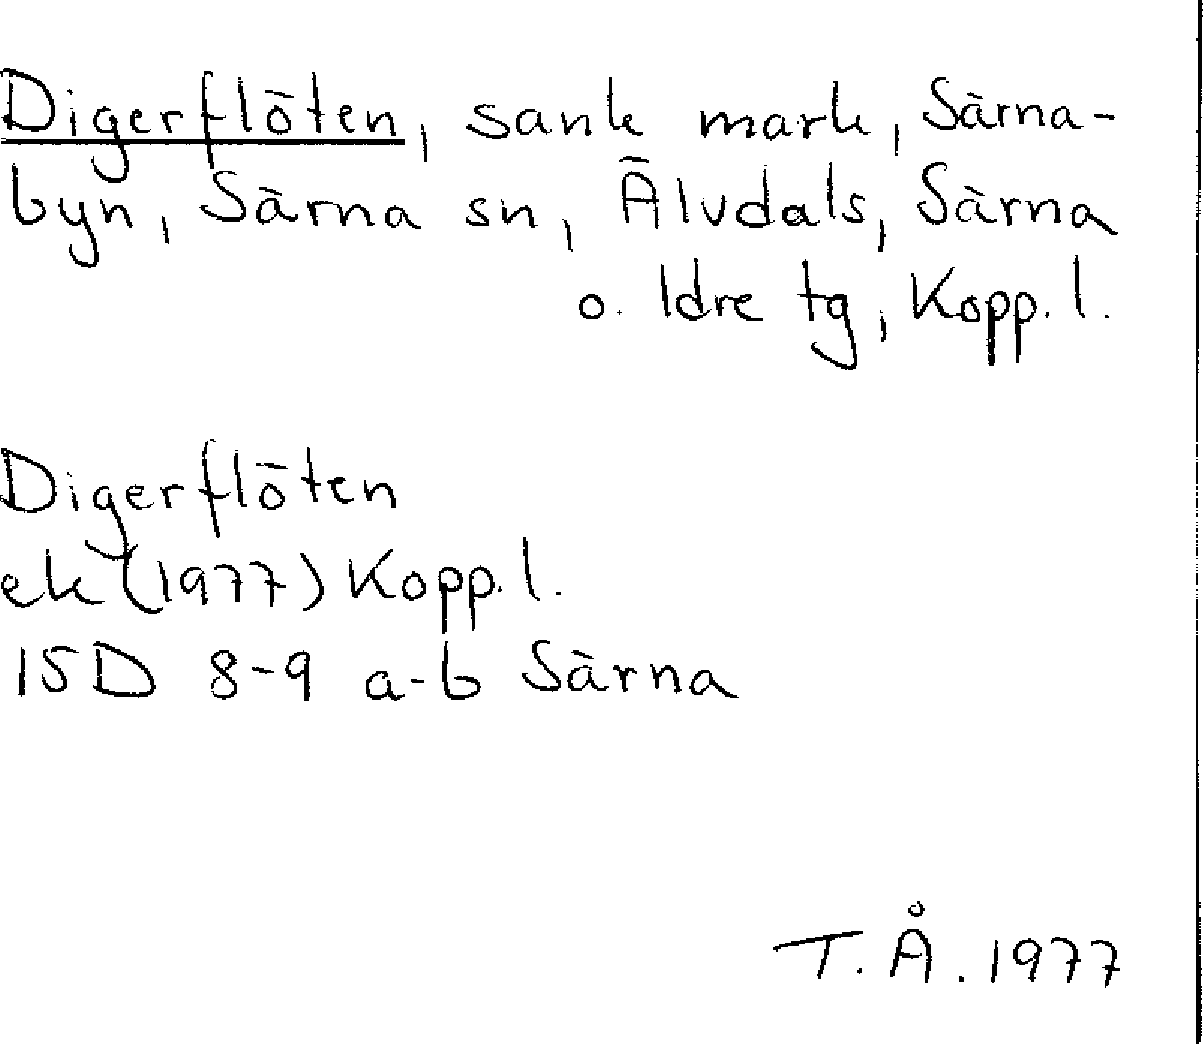 Digerflöten, sank mark, Särna-
byn, Särna sn, Älvdals, Särna
o. Idre tg, Kopp. l.
Digerflöten
ek (1977) Kopp. l.
15D 8-9 a-b Särna
T. Å. 1977